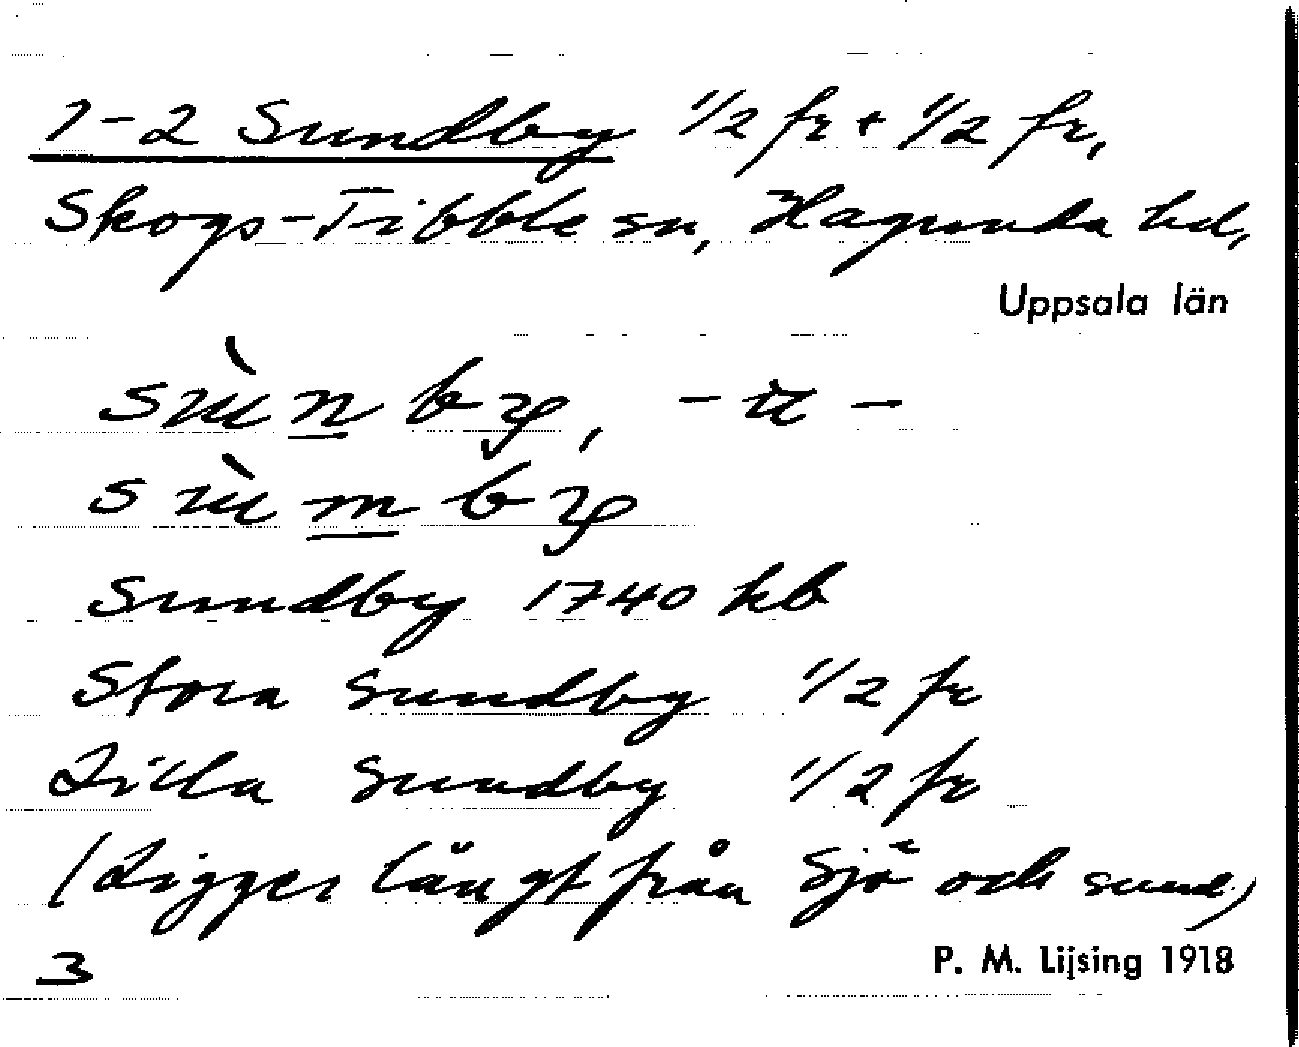 1-2 Sundby 1/2 fr + 1/2 fr,
Skogs-Tibble sn, Hagunda hd,
Uppsala län
sùnby, -u-
sùmby
Sundby 1740 kb
Stora Sundby 1/2 fr
Lilla Sundby 1/2 fr
(Ligger långt från Sjö och sund)
3
P. M. Lijsing 1918